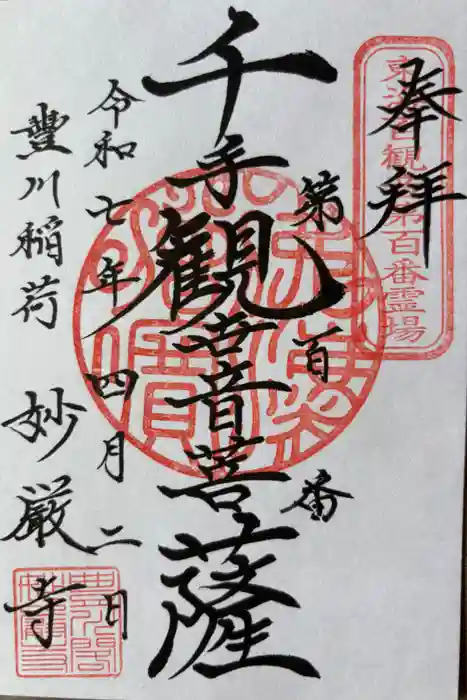 奉拝
東海百観音第百番霊場
第百番
千手観世音菩薩
令和七年四月二日
豐川稲荷
妙厳寺